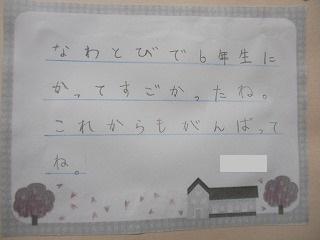 なわとびで6年生に
かってすごかったね。
これからもがんばって
ね。